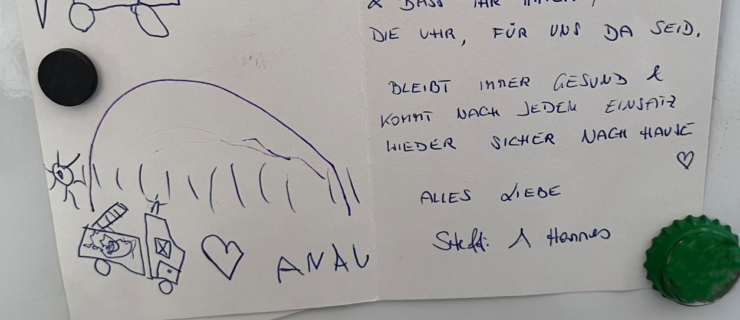 & DASS IHR IMMER,
DIE UHR, FÜR UNS DA SEID.
BLEIBT IMMER GESUND &
KOMMT NACH JEDEM EINSATZ
WIEDER SICHER NACH HAUSE
♡
ALLES LIEBE
Steffi & Hannes
♡ ANAL